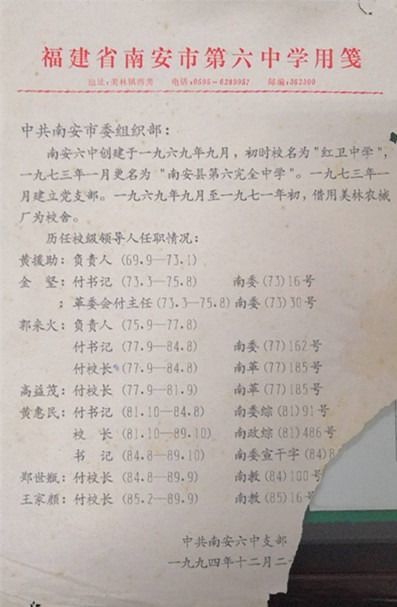 福建省南安市第六中学用笺
地址:美林镇西美 电话:0595-6289957 邮编:362300
中共南安市委组织部：
南安六中创建于一九六九年九月，初时校名为“红卫中学”，
一九七三年一月更名为“南安县第六完全中学”。一九七三年一
月建立党支部。一九六九年九月至一九七一年初，借用美林农械
厂为校舍。
历任校级领导人任职情况：
黄援助：负责人(69.9—73.1)
金 坚：付书记(73.3—75.8) 南委(73)16号
；革委会付主任(73.3—75.8)南委(73)30号
郭来火：负责人(75.9—77.8)
付书记(77.9—84.8) 南委(77)162号
付校长(77.9—84.8) 南革(77)185号
高益茂：付校长(77.9—81.9) 南革(77)185号
黄惠民：付书记(81.10—84.8) 南委综(81)91号
校 长(81.10—89.10) 南政综(81)486号
书 记(84.8—89.10) 南委宣干字(84)8
郑世瓶：付校长(84.8—89.9) 南教(84)100号
王家颜：付校长(85.2—89.9) 南教(85)16号
中共南安六中支部
一九九四年十二月二